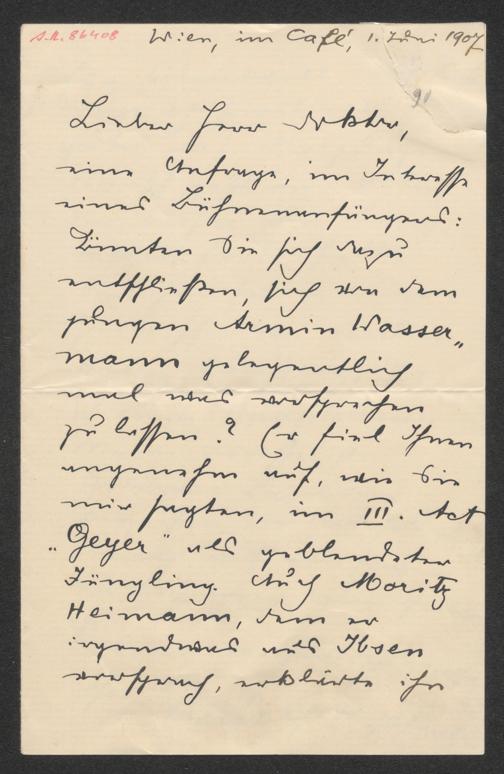 A.N. 86408
Wien, im Café, 1. Juni 1907
91
Lieber Herr Doktor,
eine Anfrage, im Interesse
eines Bühnenanfängers:
Könnten Sie sich dazu
entschließen, sich von dem
jungen Armin Wasser„
mann gelegentlich
mal was vorsprechen
zu lassen? Er fiel Ihnen
angenehm auf, wie Sie
mir sagten, im III. Act
„Geyer" als geblendeter
Jüngling. Auch Moritz
Heimann, dem er
irgendwas aus Ibsen
vorsprach, erklärte ihn